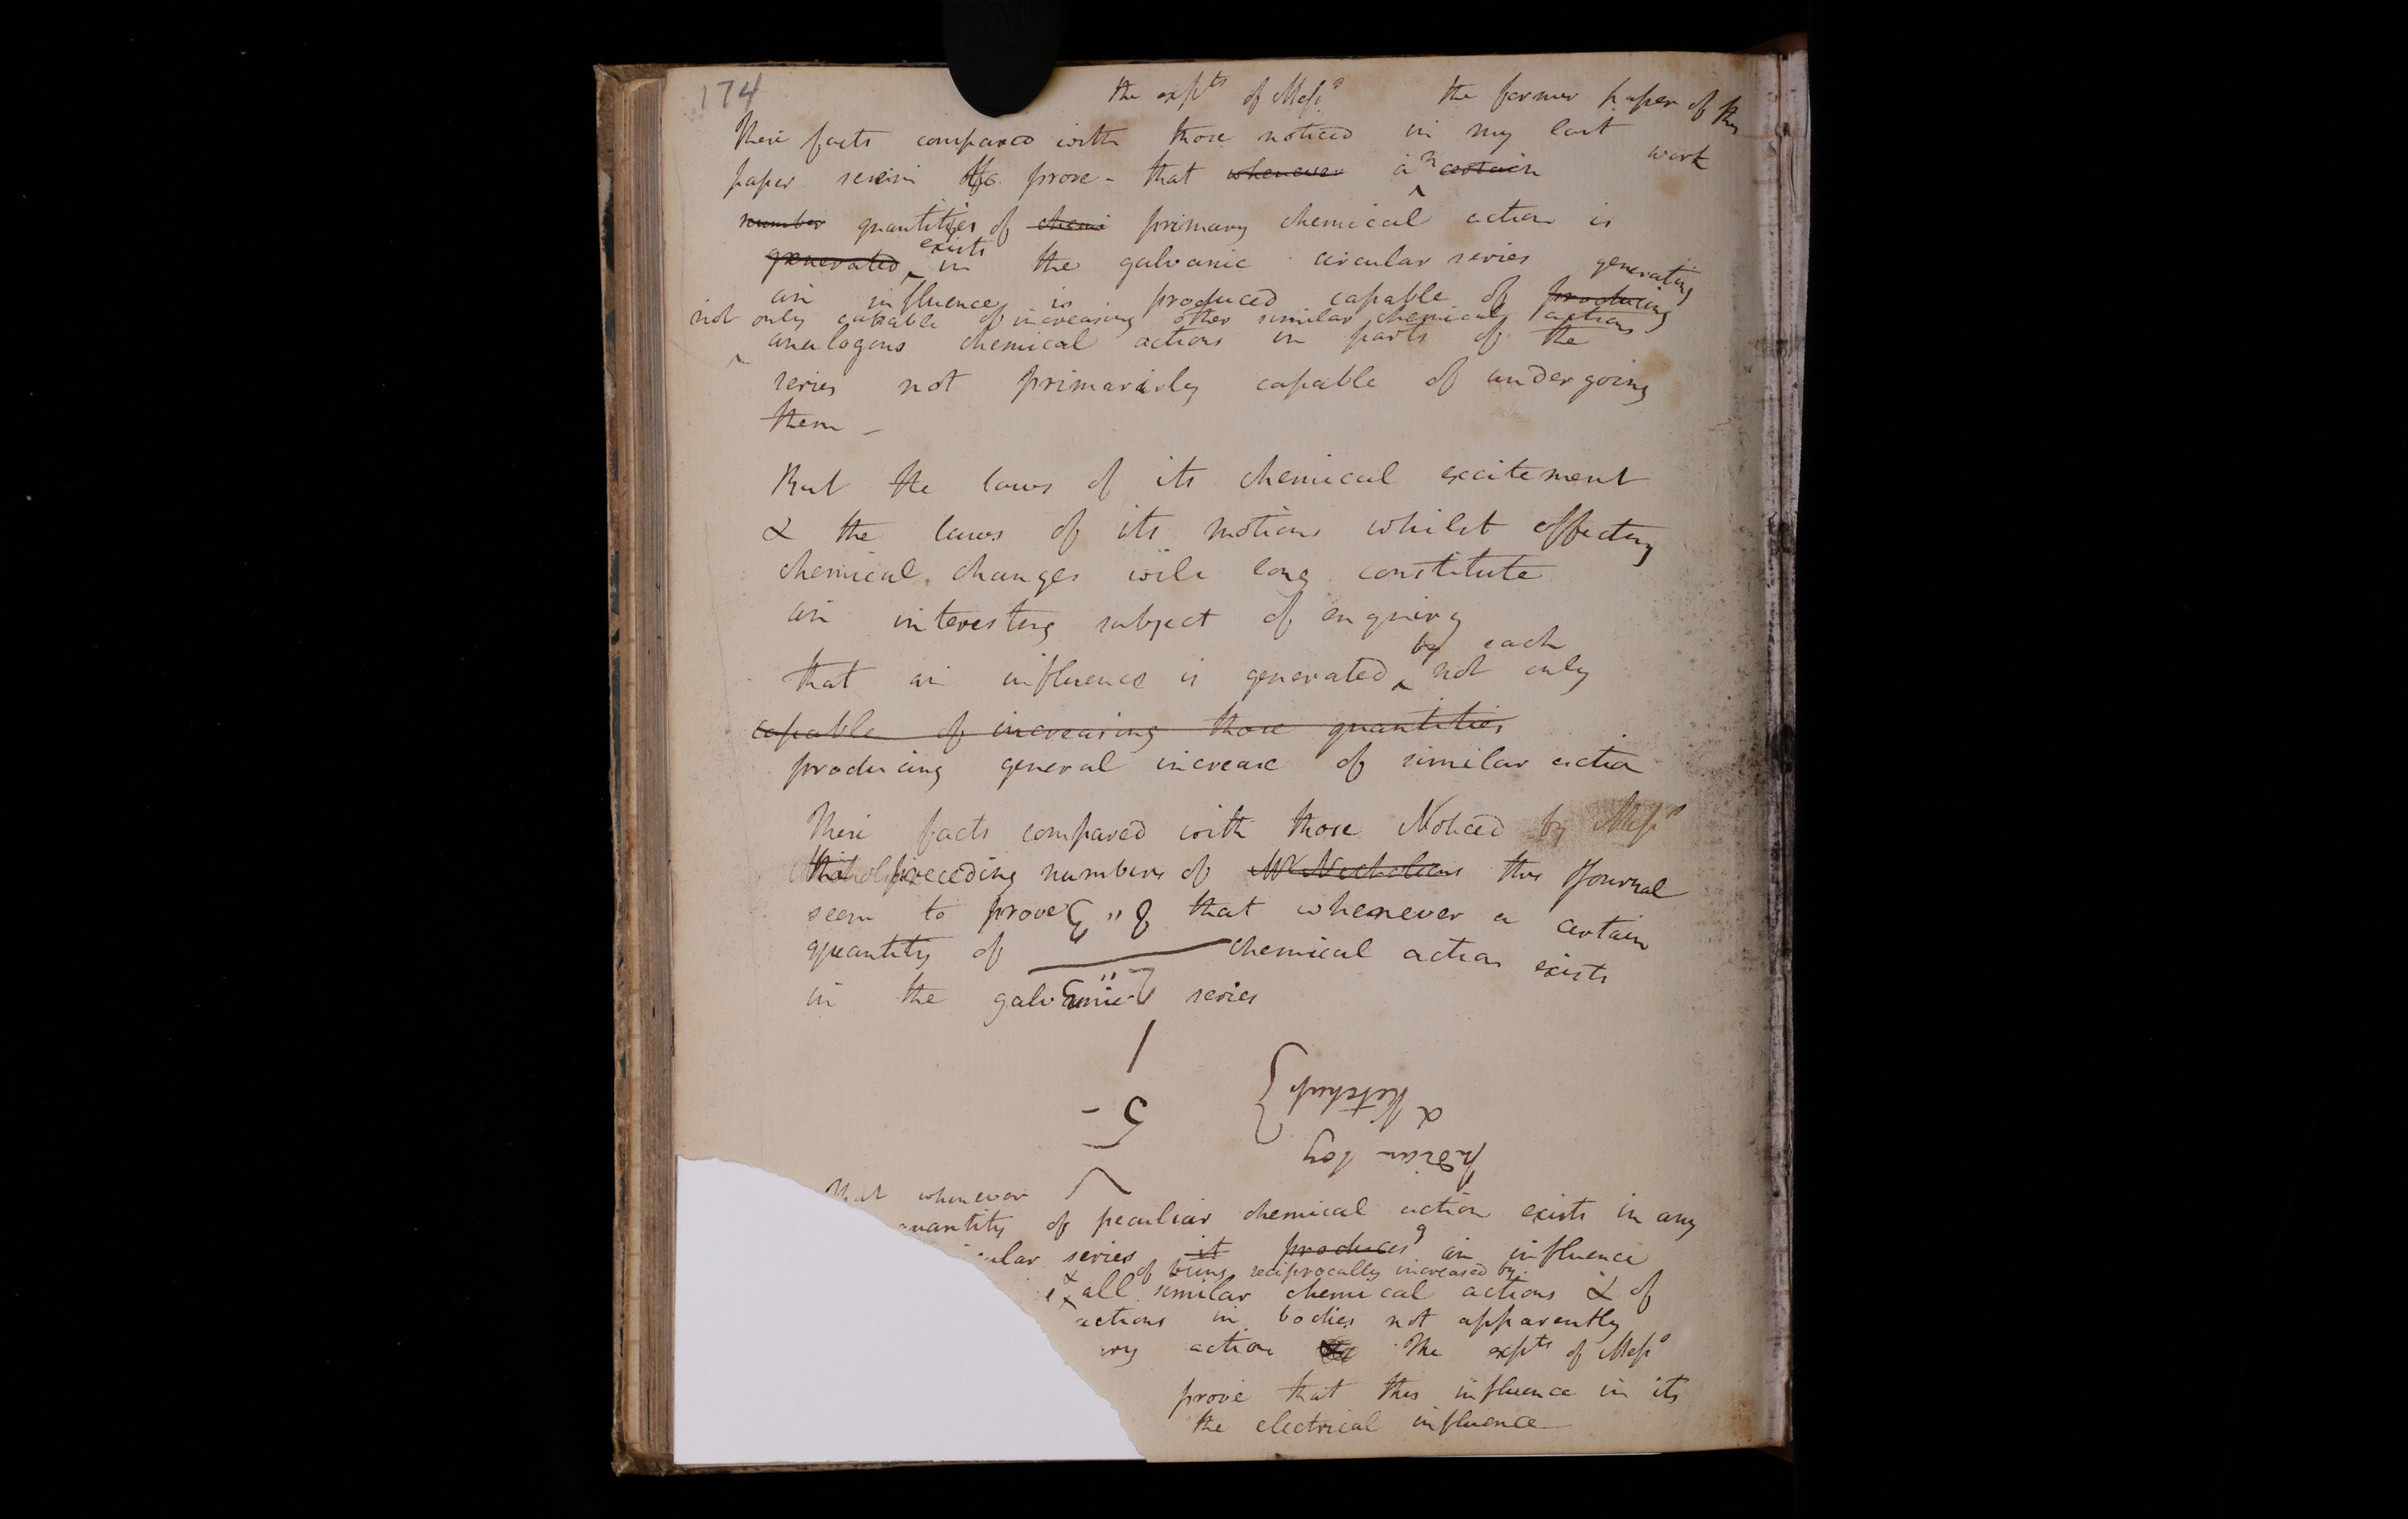 174
the expts of Messrs the former paper of this
These facts compared with those noticed in my last work
paper seem to prove - that whenever an certain
number quantities of chemi primary chemical action is
generated exists in the galvanic circular series generating
an influence is produced capable of producing
not only capable of increasing other similar chemical actions
analogous chemical actions in parts of the
series not primarily capable of undergoing
them -
But the laws of its chemical excitement
& the laws of its motions whilst effecting
chemical changes will long constitute
an interesting subject of enquiry
by each
that an influence is generated not only
capable of increasing those quantities
producing general increase of similar action
These facts compared with those Noticed by Messrs
preceding numbers of Mr Nicholsons this Journal
seem to prove that whenever a certain
quantity of chemical action exists
in the galvanic series
5 -
Indian Soy
& Ketchup
That whenever
quantity of peculiar chemical action exists in any
cular series it produces an influence
& of being reciprocally increased by
all similar chemical actions & of
actions in bodies not apparently
ary action The expts of Messrs
prove that this influence in its
the electrical influence